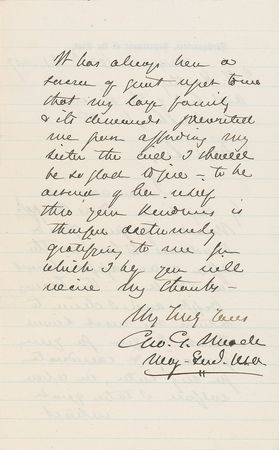 It has always been a
source of great regret to me
that my large family
& its demands prevented
me from affording my
sister the aid I should
be so glad to give - to be
assured of her relief
thro' your kindness is
therefore extremely
gratifying to me for
which I beg you will
receive my thanks -
Very Truly Yours
Geo. G. Meade
Maj. Genl. U.S.A.